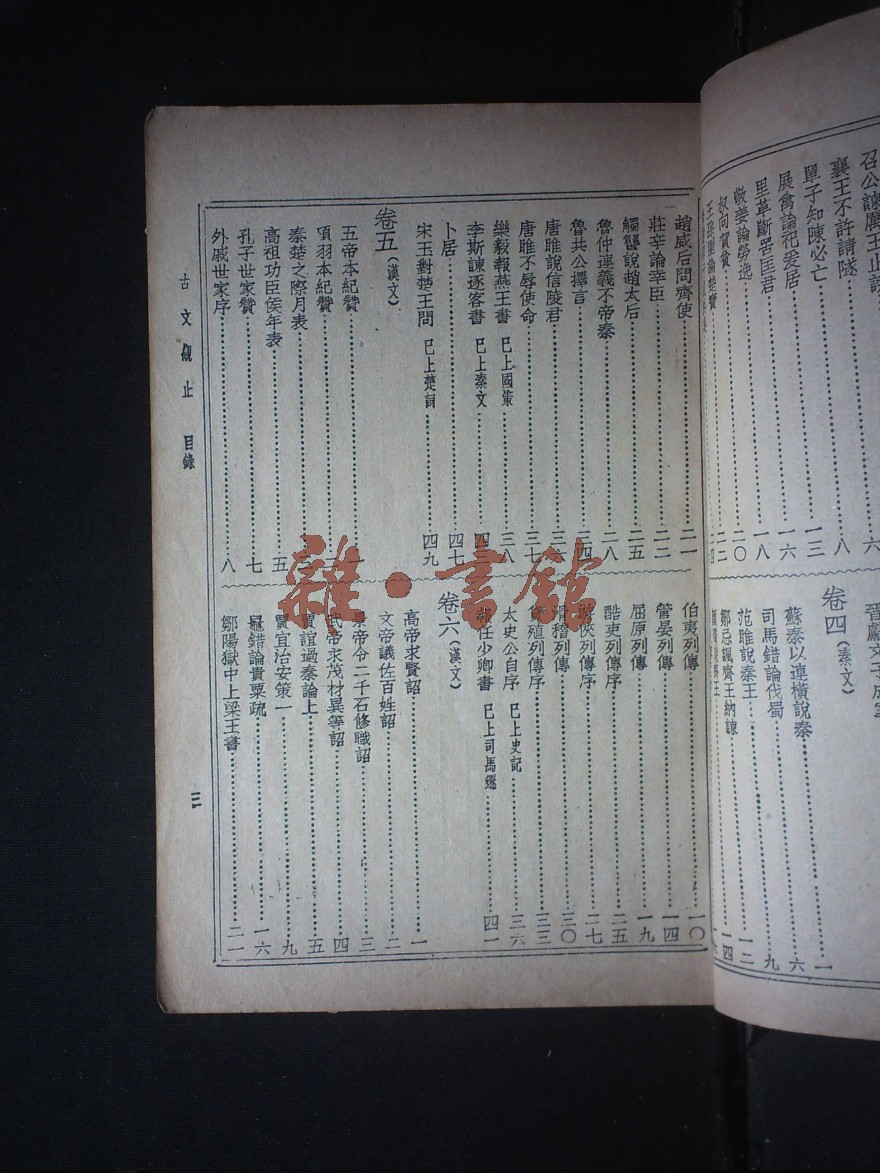 召公諫厲王止謗 六
襄王不許請隧 八
單子知陳必亡 一三
展禽論祀爰居 一六
里革斷罟匡君 一八
敬姜論勞逸 二〇
叔向賀貧 二二
卷四（秦文）
蘇秦以連橫說秦 一
司馬錯論伐蜀 六
范雎說秦王 九
鄒忌諷齊王納諫 一二
趙威后問齊使 二一
莊辛論幸臣 二二
觸讋說趙太后 二五
魯仲連義不帝秦 二八
魯共公擇言
唐雎說信陵君
唐雎不辱使命 三七
樂毅報燕王書 已上國策 三八
李斯諫逐客書 已上秦文
卜居 四七
宋玉對楚王問 已上楚詞 四九
卷五（漢文）
五帝本紀贊 一
項羽本紀贊
秦楚之際月表
高祖功臣侯年表 五
孔子世家贊 七
外戚世家序 八
伯夷列傳 一〇
管晏列傳 一四
屈原列傳 一九
酷吏列傳序 二五
游俠列傳序 二七
滑稽列傳 三〇
貨殖列傳序 三三
太史公自序 已上史記 三六
報任少卿書 已上司馬遷 四一
卷六（漢文）
高帝求賢詔 一
文帝議佐百姓詔 二
景帝令二千石修職詔 三
武帝求茂材異等詔 四
賈誼過秦論上 五
賈誼治安策一 九
鼂錯論貴粟疏 一六
鄒陽獄中上梁王書 二一
古文觀止 目錄
三
雜·書館